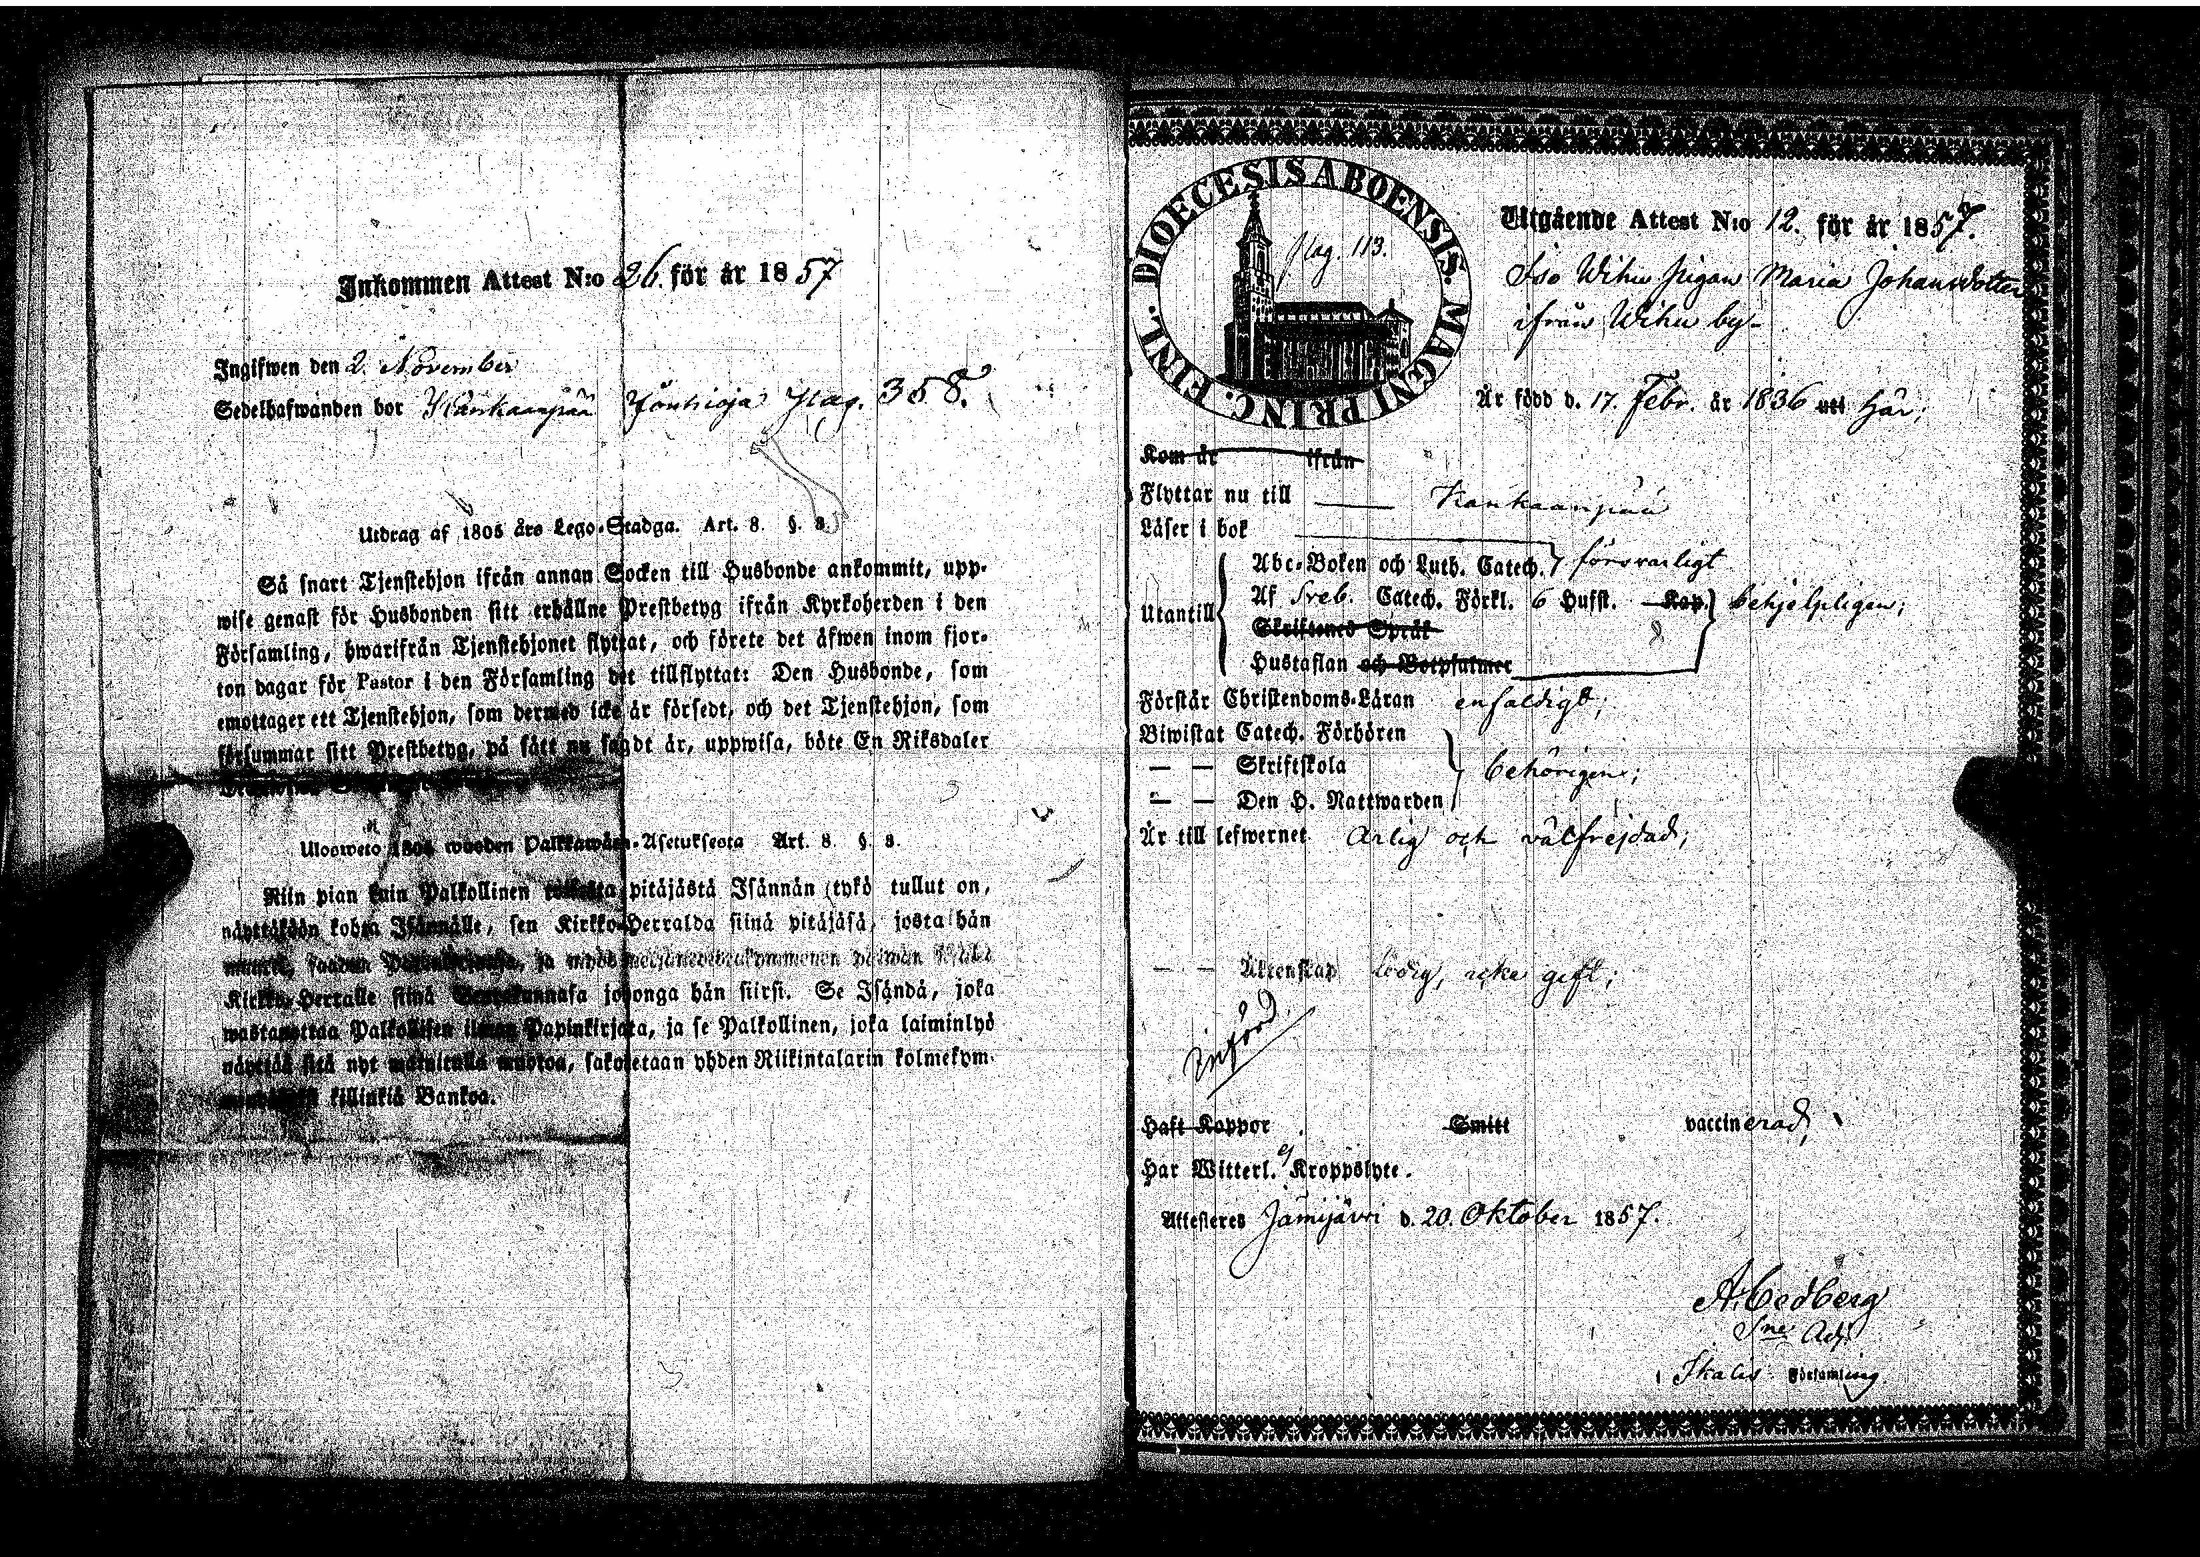 Inkommen Attest N:o 26. för år 1857
Ingifwen den 2. November
Sedelhafwanden bor Kankaanpää Pag. 358.
Utdrag af 1805 års Lego-Stadga. Art. 8. §. 8.
Så snart Tjenstehjon ifrån annan Socken till Husbonde ankommit, upp-
wise genast för Husbonden sitt erhållne Prestbetyg ifrån Kyrkoherden i den
Församling, hwarifrån Tjenstehjonet flyttat, och förete det äfwen inom fjor-
ton dagar för Pastor i den Församling det tillflyttat: Den Husbonde, som
emottager ett Tjenstehjon, som dermed icke är försedt, och det Tjenstehjon, som
försummar sitt Prestbetyg, på sätt nu sagdt är, uppwisa, böte En Riksdaler
Ulosweto 1805 wuoden Palkkawäen-Asetuksesta Art. 8. §. 8.
Niin pian kuin Palkollinen toisesta pitäjästä Isännän tykö tullut on,
näyttäköön kohta Isännälle, sen Kirkko-Herralda siinä pitäjäsä, josta hän
ja myös
Kirkko-Herralle siinä Seurakunnasa johonga hän siirsi. Se Isändä, joka
wastaanottaa Palkollisen ilman Papinkirjata, ja se Palkollinen, joka laiminlyö
näyttää sitä nyt mainitulla muotoa, sakotetaan yhden Riikintalarin kolmekym-
killinkiä Bankoa.
DIOECESIS ABOENSIS. MAGNI PRINC. FINL.
Pag. 113.
Utgående Attest N:o 12. för år 1857.
Iso Wihu Pigan Maria Johansdotter
ifrån Wihu by-
Är född d. 17. Febr. år 1836 uti här;
Kom år ifrån
Flyttar nu till Kankaanpää
Läser i bok
Utantill
Abc-Boken och Luth. Catech. försvarligt
Af Sveb. Catech. Förkl. 6 Hufst. Kap. behjelpligen;
Skriftenes Språk
Hustaflan och Botpsalmer
Förstår Christendoms-Läran enfaldigt;
Biwistat Catech. Förhören
— — Skriftskola behörigen;
— — Den H. Nattwarden
Är till lefwernet ärlig och välfrejdad;
— — Äktenskap ledig, icke gift;
Införd.
Haft Koppor Smitt vaccinerad,
Har Witterl. ej Kroppslyte.
Attesteres Jämijärvi d. 20. Oktober 1857.
A. Cedberg
Sne Adj.
i Ikalis Församling.